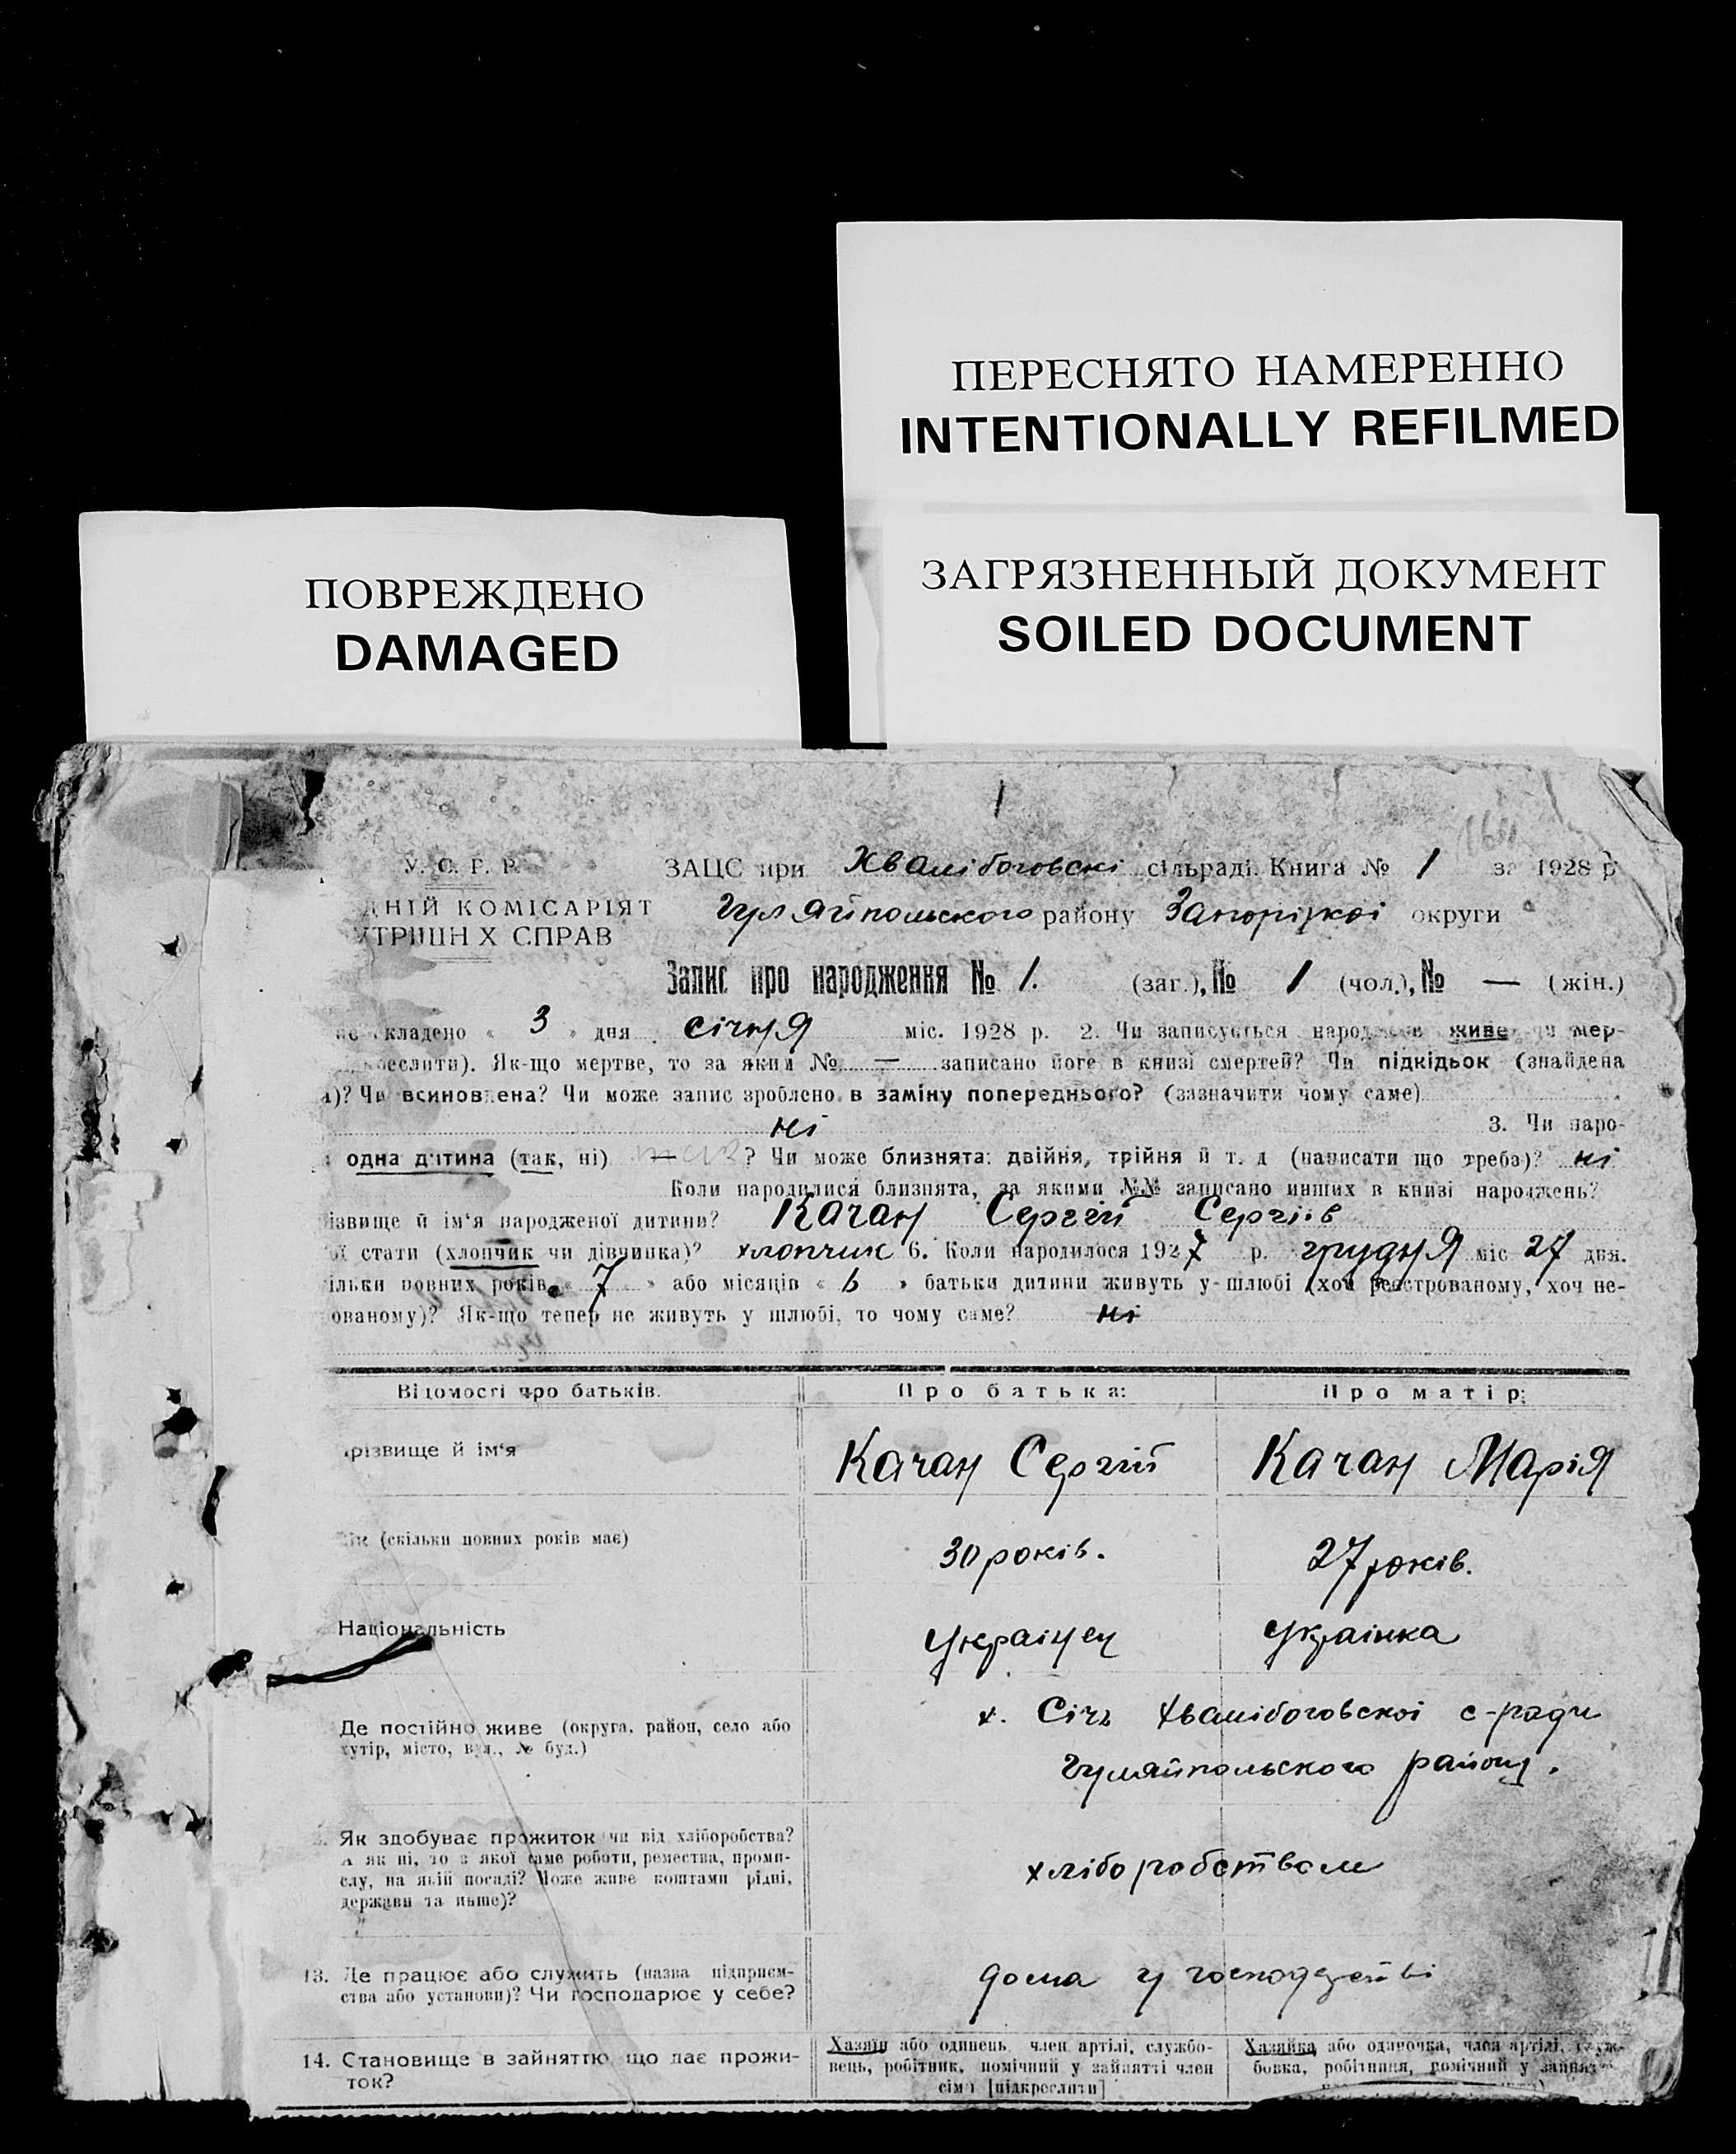 ПЕРЕСНЯТО НАМЕРЕННО
INTENTIONALLY REFILMED
ПОВРЕЖДЕНО
DAMAGED
ЗАГРЯЗНЕННЫЙ ДОКУМЕНТ
SOILED DOCUMENT
1
У. С. Р. Р. ЗАЦС при Хвалібоговскі сільраді. Книга № 1 за 1928 р
ДНІЙ КОМІСАРІЯТ Гуляйпольского району Запоріzкоі округи
ТРІШН Х СПРАВ
Запис про народження № 1. (заг.), № 1 (чол.), № — (жін.)
кладено « 3 » дня січня міс. 1928 р. 2. Чи записується живе чи мер-
реслити). Як-що мертве, то за яким № — записано його в книзі смертей? Чи підкідьок (знайдена
)? Чи всиновлена? Чи може запис зроблено в заміну попереднього? (зазначити чому саме)
ні 3. Чи наро-
одна дитина (так, ні) — ? Чи може близнята: двійня, трійня й т. д (написати що треба)? ні
Коли народилися близнята, за якими №№ записано инших в книзі народжень?
ізвище й ім‘я народженої дитини? Качан Сергій Сергіів
ї стати (хлопчик чи дівчинка)? хлопчик 6. Коли народилося 1927 р. грудня міс 27 дня.
ільки повних років « 7 » або місяців « 6 » батьки дитини живуть у шлюбі (хоч реєстрованому, хоч не-
ованому)? Як-що тепер не живуть у шлюбі, то чому саме? ні
Відомості про батьків. Про батька: Про матір:
різвище й ім‘я Качан Сергій Качан Марія
ік (скільки повних років має) 30 років. 27 років.
Національність Украінец Украінка
Де постійно живе (округа, район, село або х. Січь Хвалібоговскоі с-ради
хутір, місто, вул., № буд.) Гуляйпольского району.
Як здобуває прожиток чи від хліборобства?
А як ні, то з якої саме роботи, ремества, проми- хліборобством
слу, на якій посаді? Може живе коштами рідні,
держави та инше)?
13. Де працює або служить (назва підприєм- дома у господарстві
ства або установи)? Чи господарює у себе?
14. Становище в зайняттю, що дає прожи-
ток?
Хазяїн або одинець, член артілі, службо-
вець, робітник, помічний у зайнятті член
сім‘ї [підкреслити]
Хазяйка або одиночка, член артілі, служ-
бовка, робітниця, помічний у зайнят